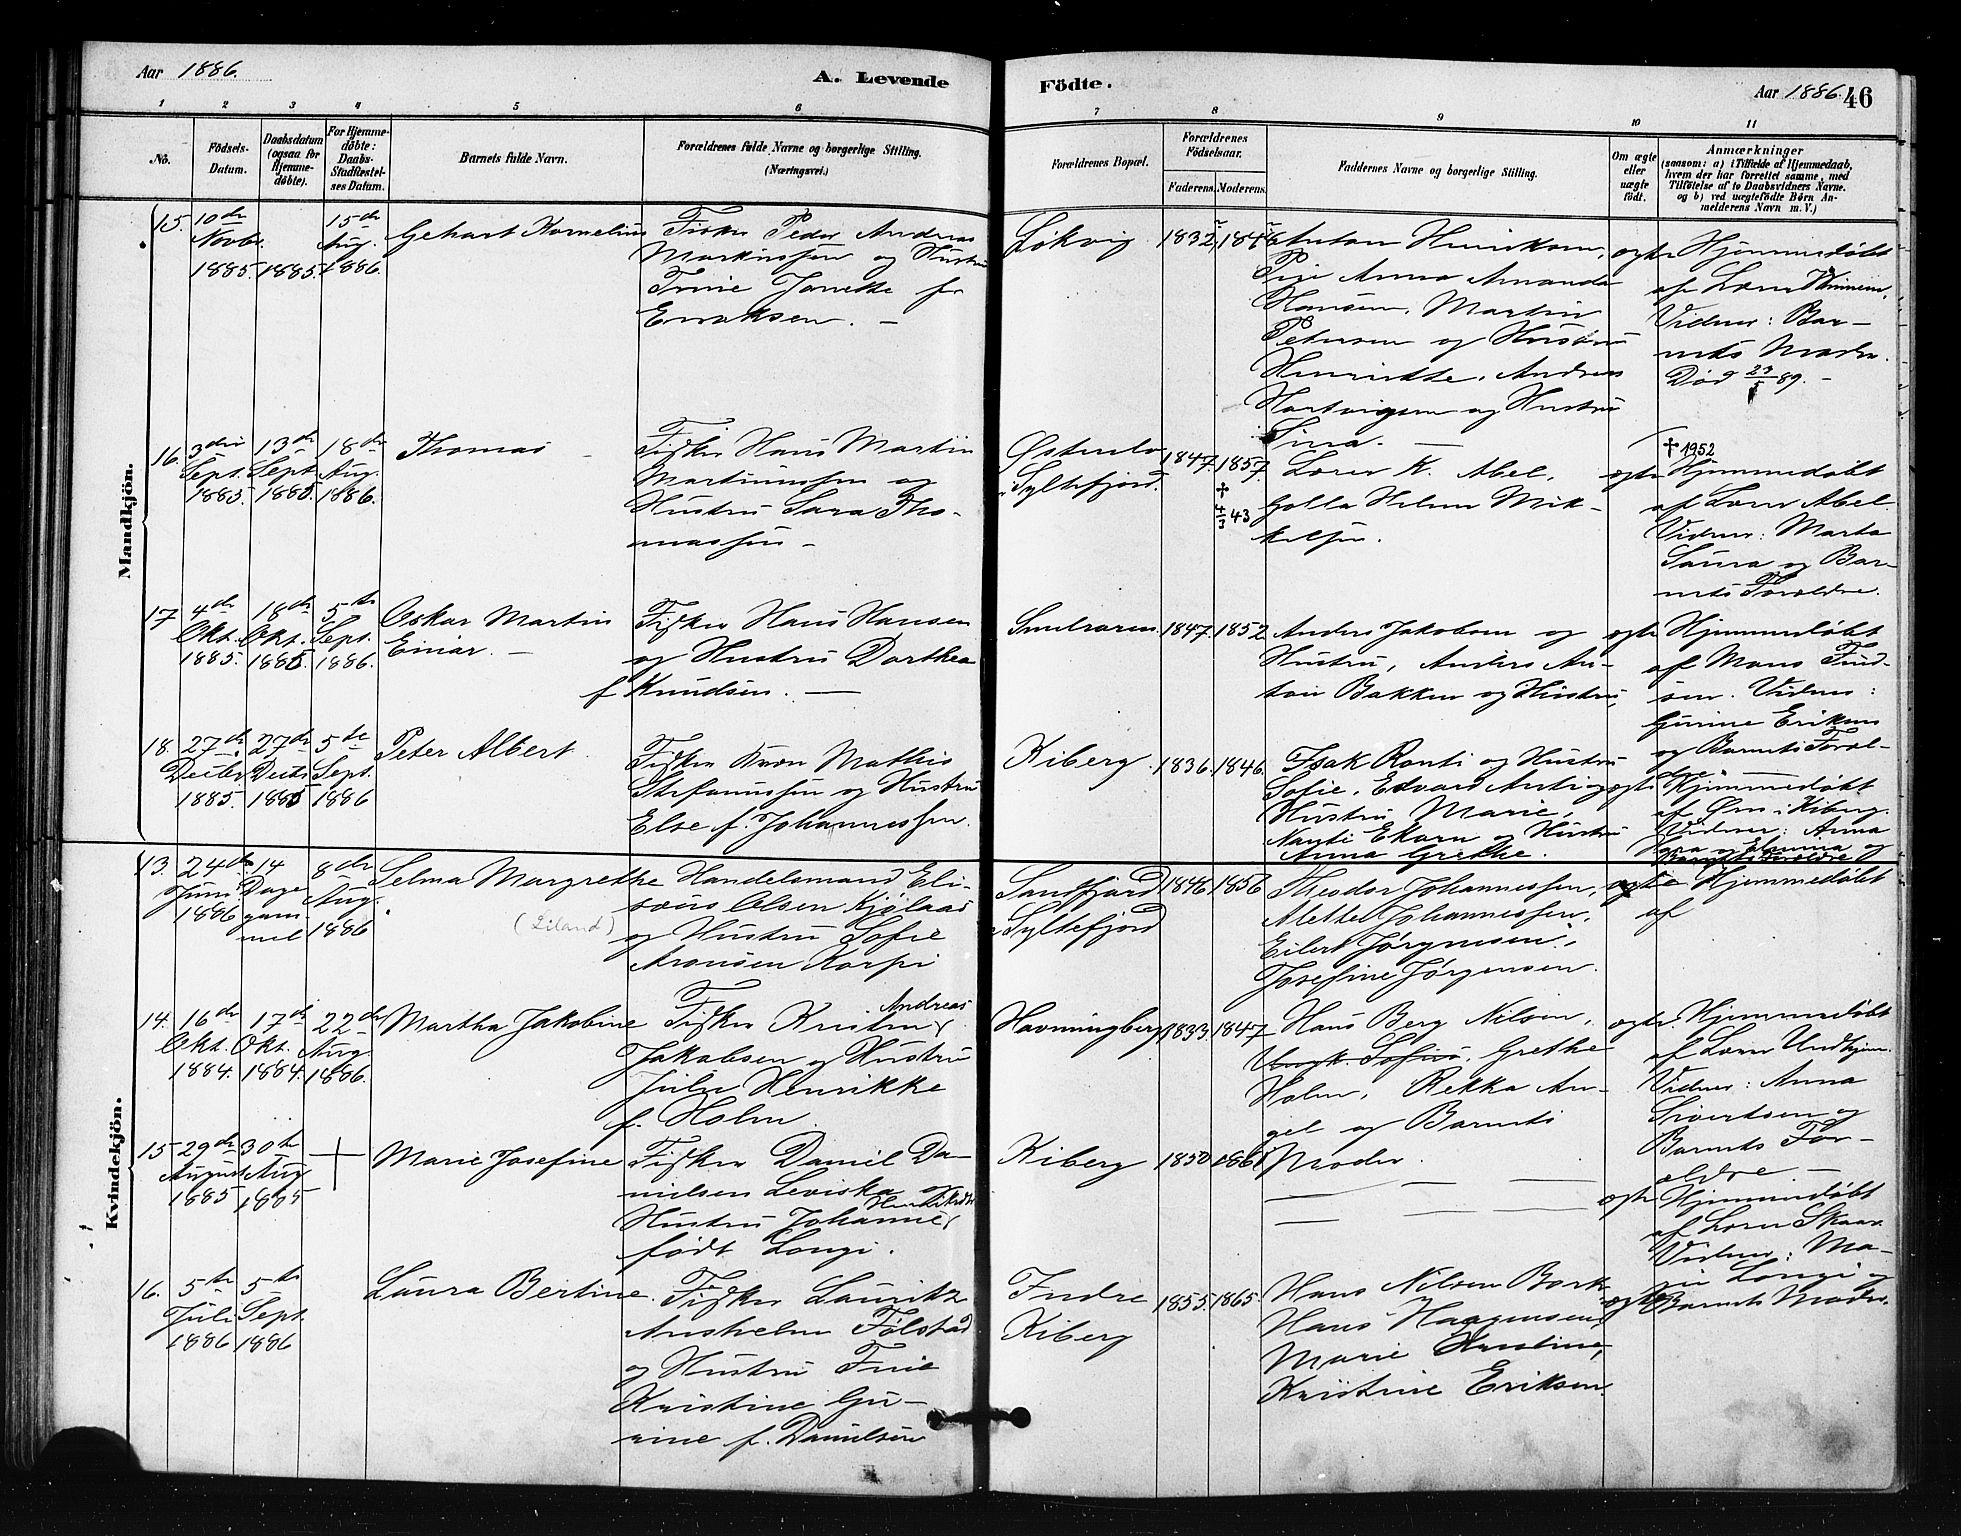 Aar 1886.
A. Levende
1 2 3 4 5 6
No.
Födsels-Datum.
Daabsdatum (ogsaa for Hjemme-døbte).
For Hjemme-døbte: Daabs-Stadfæstel-ses Datum.
Barnets fulde Navn.
Forældrenes fulde Navne og borgerlige Stilling. (Næringsvei.)
Mandkjön.
15. 10de Novbr. 1885. 1885. 15de Aug. 1886.
Gehart Kornelius
Fisker Peder Andreas
Markussen og Hustru
Trine Jonette f.
Eriksen. —
16. 3die Sept. 1885. 13de Sept. 1885. 18de Aug. 1886.
Thomas —
Fisker Hans Martin
Martinussen og
Hustru Sara Tho-
massen —
17 4de Okt. 1885. 18de Okt. 1885. 5te Sept. 1886.
Oskar Martin
Einar. —
Fisker Hans Hansen
og Hustru Dorthea
f Knudsen. —
18. 27de Decbr 1885. 27de Decbr 1885. 5te Sept. 1886
Peter Albert.
Fisker Kvæn Mathis
Stefanussen og Hustru
Else f. Johannessen.
Kvindekjön.
13. 24de Juni 1886 14 Dage gam-mel 8de Aug. 1886
Selma Margrethe
(Liland)
Handelsmand Eli-
Olsen Kjølaas
og Hustru Sofie
Aronsen Korpi
14. 16de Okt. 1884. 17de Okt. 1884. 22de Aug. 1886.
Martha Jakobine
Andreas
Fisker Kristen
Jakobsen og Hustru
Julie Henrikke
f. Holm.
15 29de August 1885 30te Aug 1885 +
Marie Josefine
Fisker Daniel Da-
nielsen Leviska og
Hustru Johanne
født Longi.
16. 5te Juli 1886 5te Sept. 1886
Laura Bertine.
Fisker Lauritz
Anshelm Følstad
og Hustru
Kristine Gu-
rine f. Danielsen
Födte.
Aar 1886. 46
7 8 9 10 11
Forældrenes Bopæl.
Forældrenes Födselsaar.
Faderens. Moderens.
Faddernes Navne og borgerlige Stilling.
Om ægte eller uægte födt.
Anmærkninger
(saasom: a) i Tilfælde af Hjemmedaab,
hvem der har forrettet samme, med
Tilföielse af to Daabsvidners Navne.
og b) ved uægtefödte Börn An-
melderens Navn m. V.)
Løkvig 1832 1846
Anton Henriksen,
Pige Anna Amanda
Hansen, Martin
Petersen og Hustru
Henriette, Andreas
Hartvigsen og Hustru
Sina. —
ægte
Hjemmedøbt
af Lærer
Vidner: Bar-
nets Moder.
Død 89. —
Østerelv i Syltefjord. 1847. 1857. † 4/3 43
Lærer K. Abel.
Golla Helene Mik-
kelsen.
ægte
† 1952
Hjemmedøbt
af Lærer Abel.
Vidner: Marta
Laura og Bar-
nets Forældre.
1847. 1852
Anders Jakobsen og
Hustru, Anders An-
ton Bakken og Hustru,
ægte
Hjemmedøbt
af Mons Find-
sen. Vidner:
Gurine Eriksen
og Barnets Foræl-
dre —
Kiberg. 1836. 1846.
Isak Ranti og Hustru
Sofie, Edvard Anti og
Hustru Marie,
Nanti Ekorn og Hustru
Anna Grethe.
ægte
Hjemmedøbt
af Ørn i Kiberg.
Vidner: Anna
og Hanna og
Barnets Forældre
Sandfjord i Syltefjord 1846 1856
Theodor Johannessen,
Alette Johannessen,
Eilert Jørgensen,
Josefine Jørgensen.
ægte
Hjemmedøbt
af
Havningberg 1833. 1847
Hans Berg Nilsen,
Grethe
Holm, Rekka An-
gel og Barnets
Moder.
ægte.
Hjemmedøbt
af Lærer Undhjem.
Vidner: Anna
Sivertsen og
Barnets For-
ældre —
Kiberg 1850 1861
— — — —
ægte
Hjemmedøbt
af Lærer Skaar.
Vidner: Ma-
rie Longi og
Barnets Moder.
Indre Kiberg 1855. 1865.
Hans Nilsen Bark
Hans Haagensen,
Marie Kristine,
Kristine Eriksen.
ægte